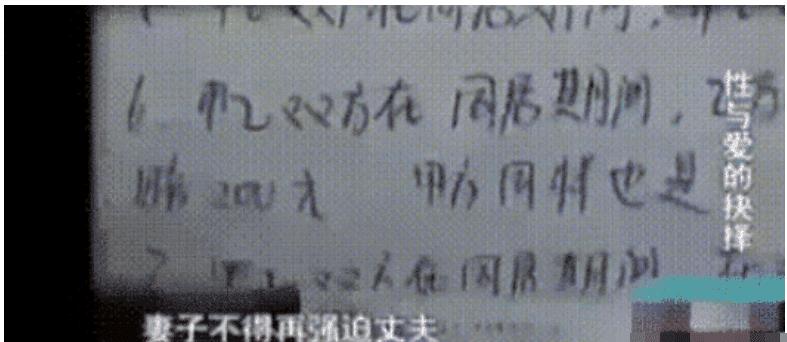 6 甲乙双方在同居期间，乙方
赔200元 甲方同样也是
7 甲乙双方在同居期间
性与爱的抉择
妻子不得再强迫丈夫